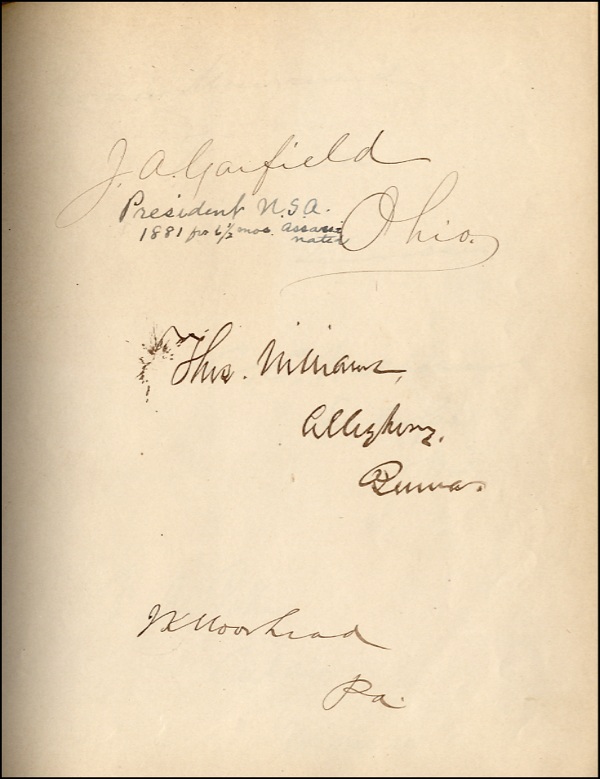 J. A. Garfield
President U.S.A.
Ohio.
1881 for 6 1/2 mos. Assassi
nated
Thos. Williams,
Allegheny,
Penna.
J K Moorhead
Pa.